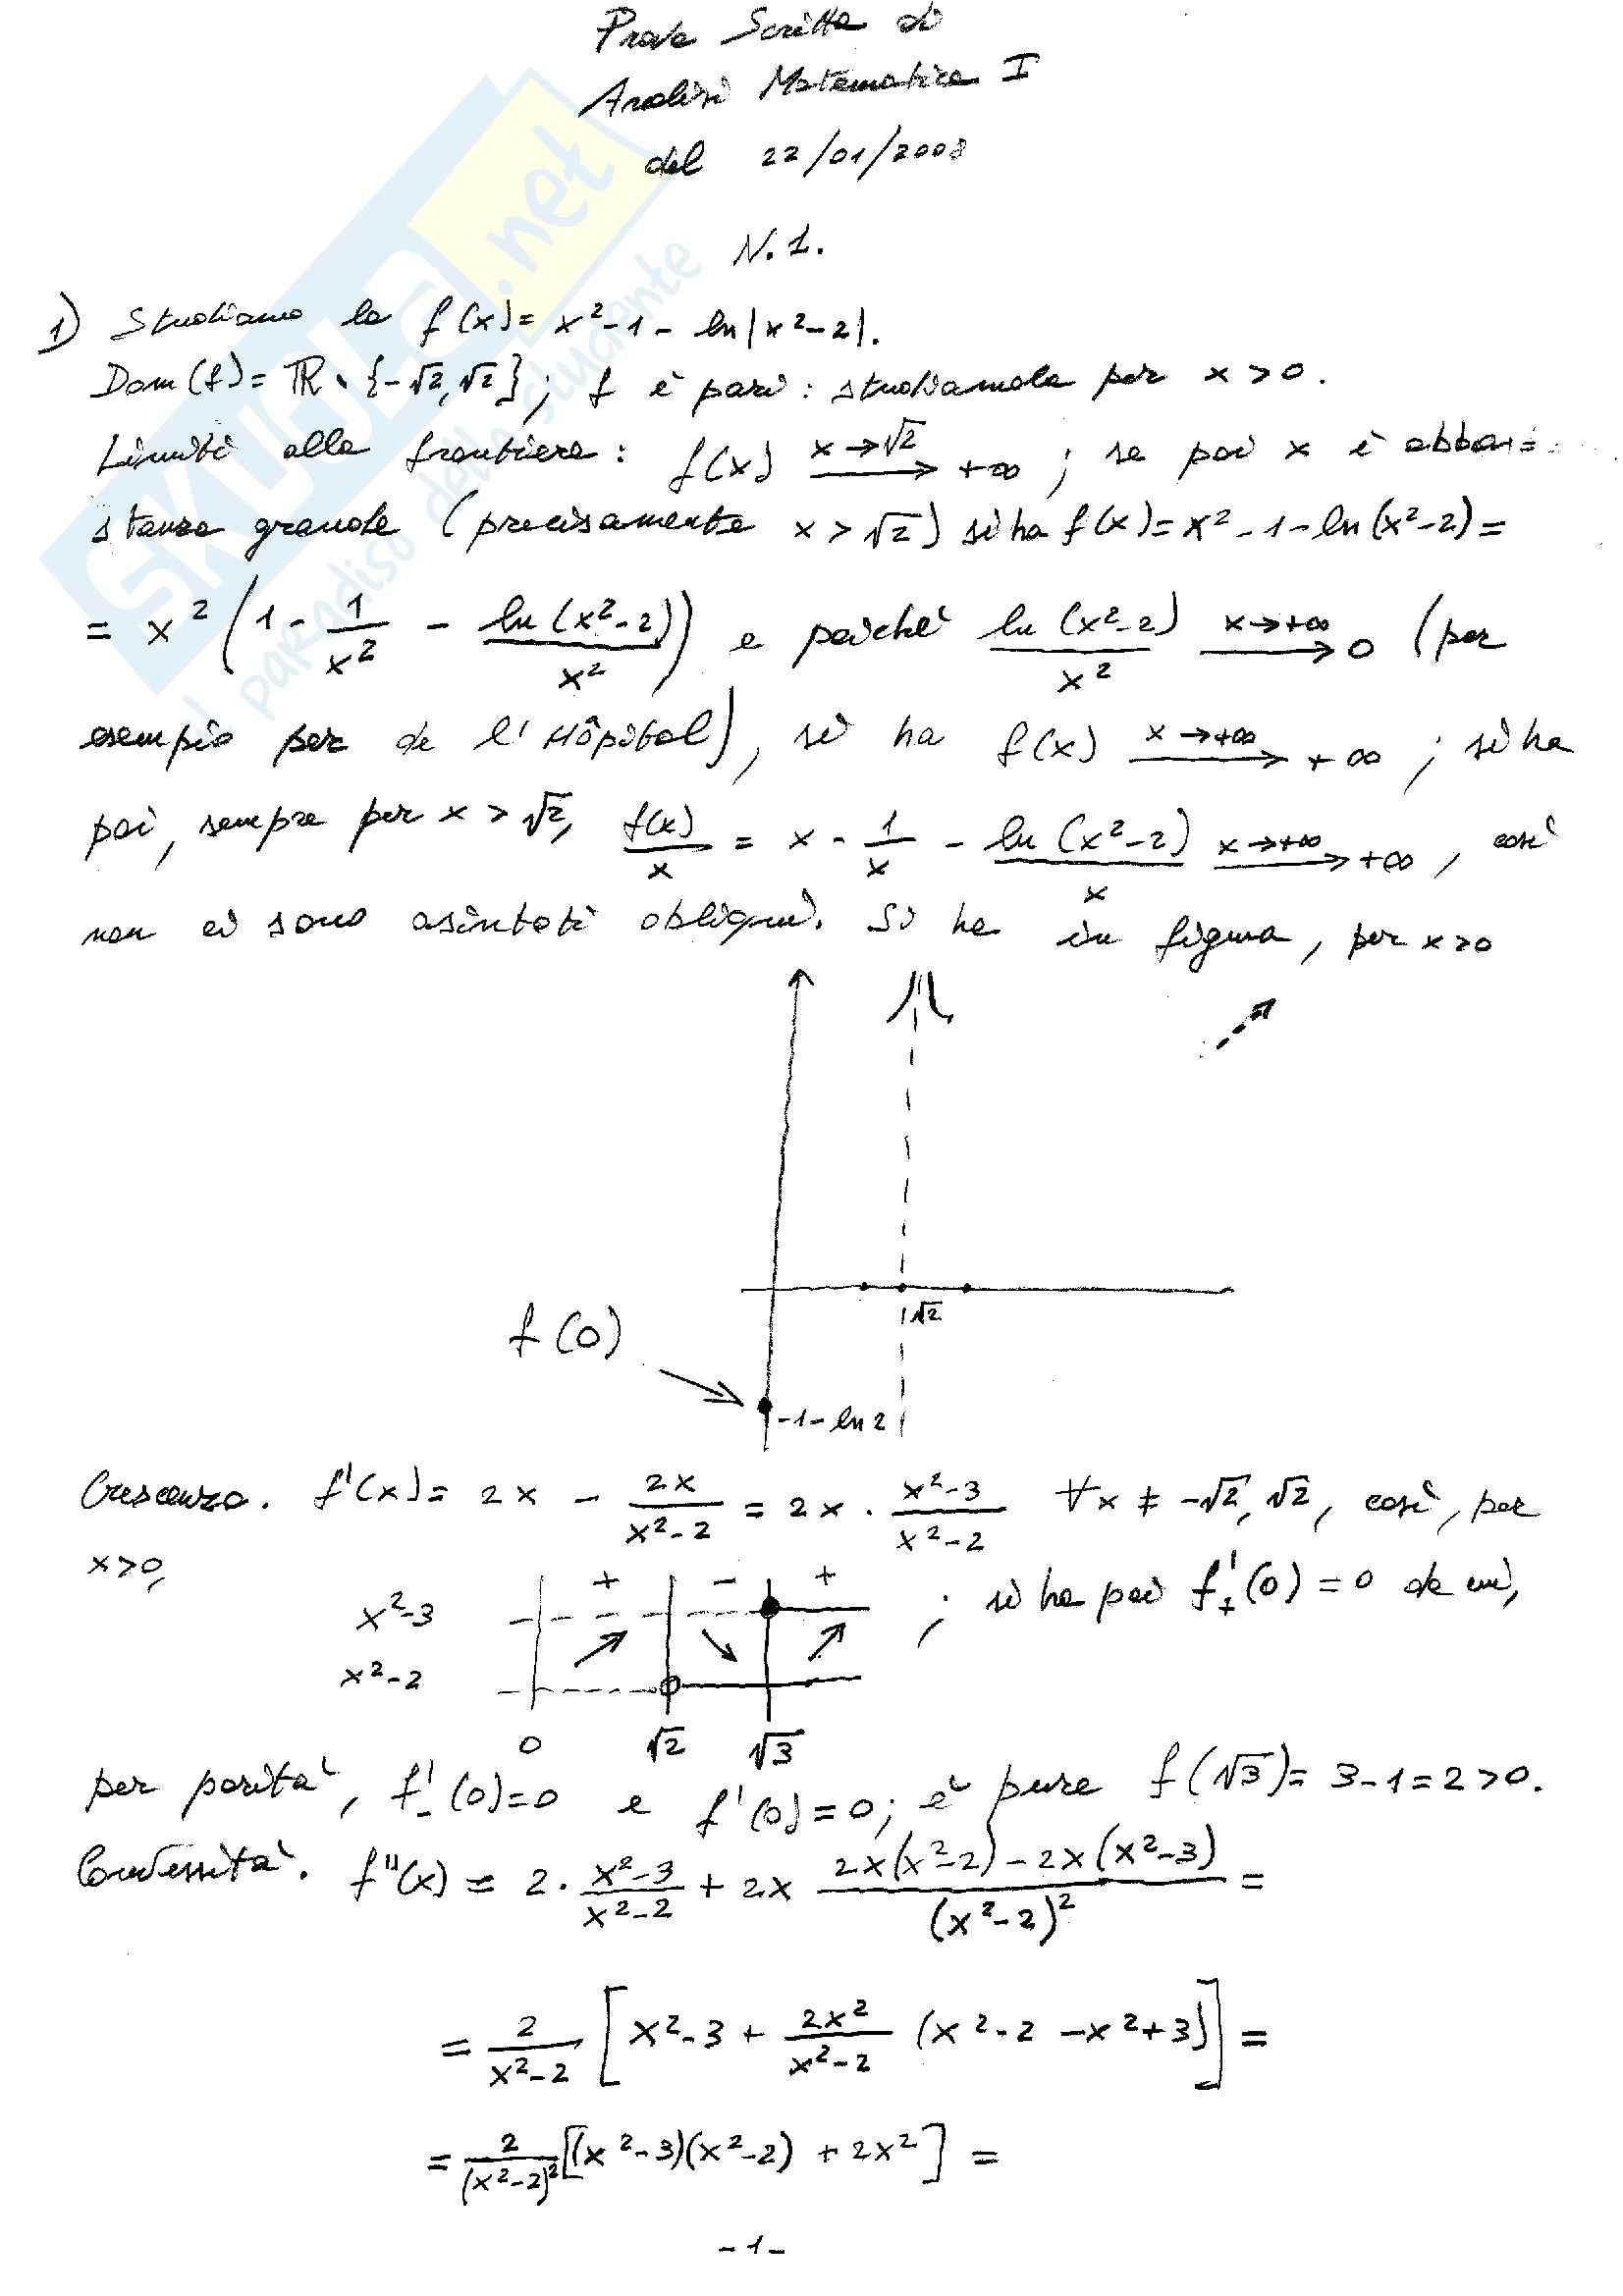 Prova Scritta di
Analisi Matematica I
del 22/01/2008
N.1.
1) Studiamo la f(x)= x²-1- ln|x²-2|.
Dom(f)= ℝ \ {-√2,√2}; f è pari: studiamola per x>0.
Limiti alla frontiera: f(x) x→√2 ⟶ +∞ ; se poi x è abba=
stanza grande (precisamente x>√2) si ha f(x)=x²-1-ln(x²-2)=
= x² (1 - 1/x² - ln(x²-2)/x²) e poiché ln(x²-2)/x² x→+∞ ⟶ 0 (per
esempio per de l'Hôpital), si ha f(x) x→+∞ ⟶ +∞ ; si ha
poi, sempre per x>√2, f(x)/x = x - 1/x - ln(x²-2)/x x→+∞ ⟶ +∞, così
non ci sono asintoti obliqui. Si ha in figura, per x>0
√2
f(0)
-1-ln2
Crescenza. f'(x)= 2x - 2x/(x²-2) = 2x · (x²-3)/(x²-2) ∀x ≠ -√2,√2, così, per
x>0,
+ - +
x²-3
; si ha poi f'₊(0)=0 da cui,
x²-2
0 √2 √3
per parità, f'₋(0)=0 e f'(0)=0; è pure f(√3)= 3-1=2>0.
Convessità. f''(x) = 2· (x²-3)/(x²-2) + 2x (2x(x²-2)-2x(x²-3))/(x²-2)² =
= 2/(x²-2) [x²-3 + 2x²/(x²-2) (x²-2-x²+3)] =
= 2/(x²-2)² [(x²-3)(x²-2) + 2x²] =
-1-
SKUOLA.net
il paradiso dello studente